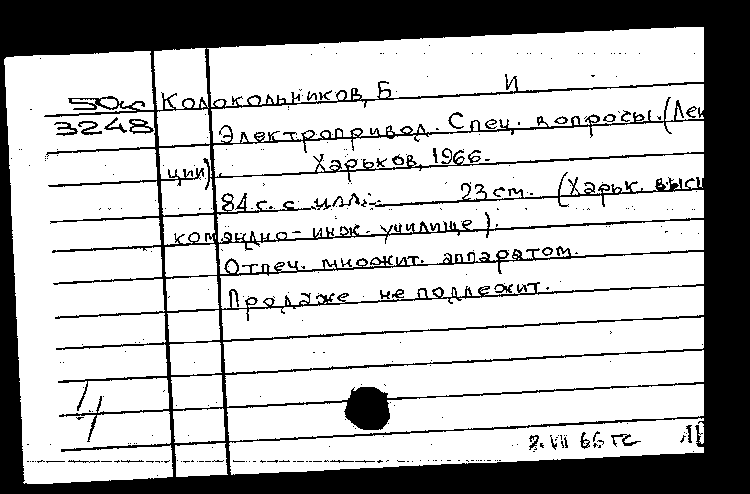 50 Колокольников, Б И
3248
Электропривод. Спец. вопросы. (Лек
ции). Харьков, 1966.
84 с. с илл. 23 см. (Харьк. высш
командно-инж. училище).
Отпеч. множит. аппаратом.
Продаже не подлежит.
2.VII 66 гс